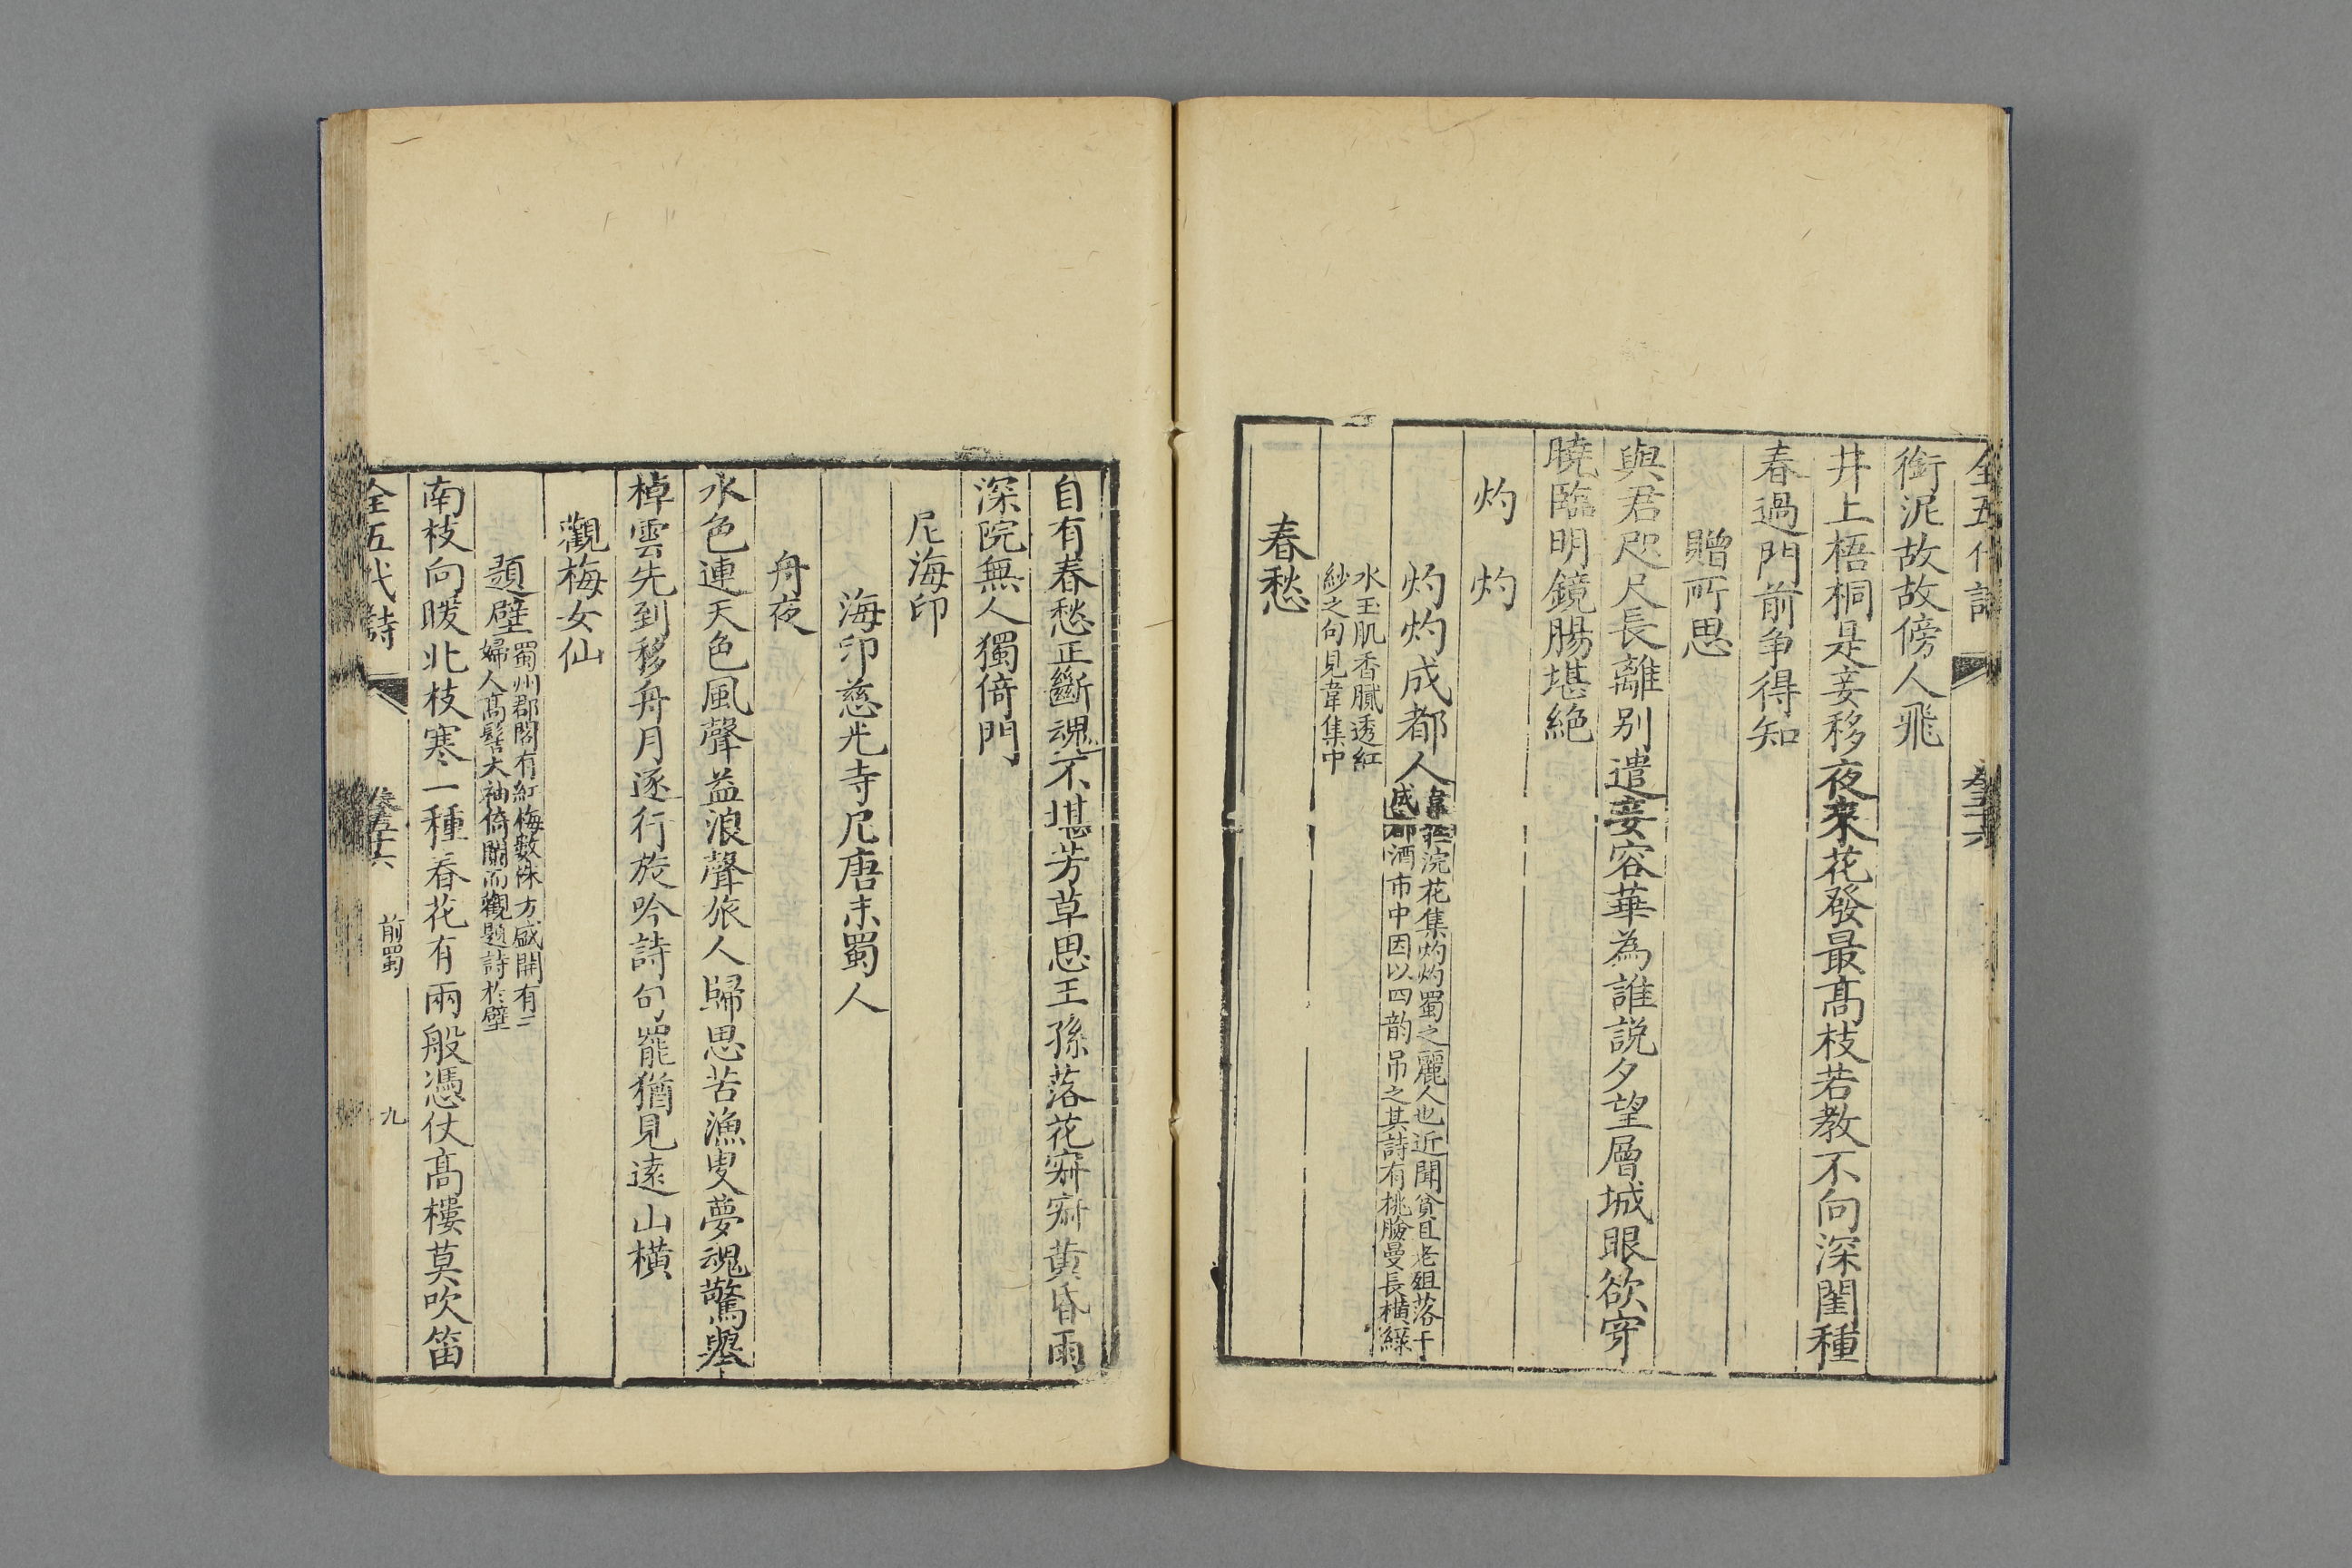 全五代詩
銜泥故故傍人飛
井上梧桐是妾移夜來花發最高枝若教不向深閨種
春過門前争得知
贈所思
與君咫尺長離别遣妾容華為誰説夕望層城眼欲穿
曉臨明鏡腸堪絶
灼灼
灼灼成都人韋莊浣花集灼灼蜀之麗人也近聞貧且老殂落于
成都酒市中因以四韵吊之其詩有桃臉曼長橫綠
水玉肌香膩透紅
紗之句見韋集中
春愁
自有春愁正斷魂不堪芳草思王孫落花寂寂黄昏雨
深院無人獨倚門
尼海印
海印慈光寺尼唐末蜀人
舟夜
水色連天色風聲益浪聲旅人歸思苦漁叟夢魂驚舉
棹雲先到移舟月逐行旋吟詩句罷猶見遠山橫
觀梅女仙
題壁蜀州郡閣有紅梅數株方盛開有二
婦人髙髻大袖倚闌而觀題詩於壁
南枝向暖北枝寒一種春花有兩般憑仗髙樓莫吹笛
全五代詩
前蜀
九